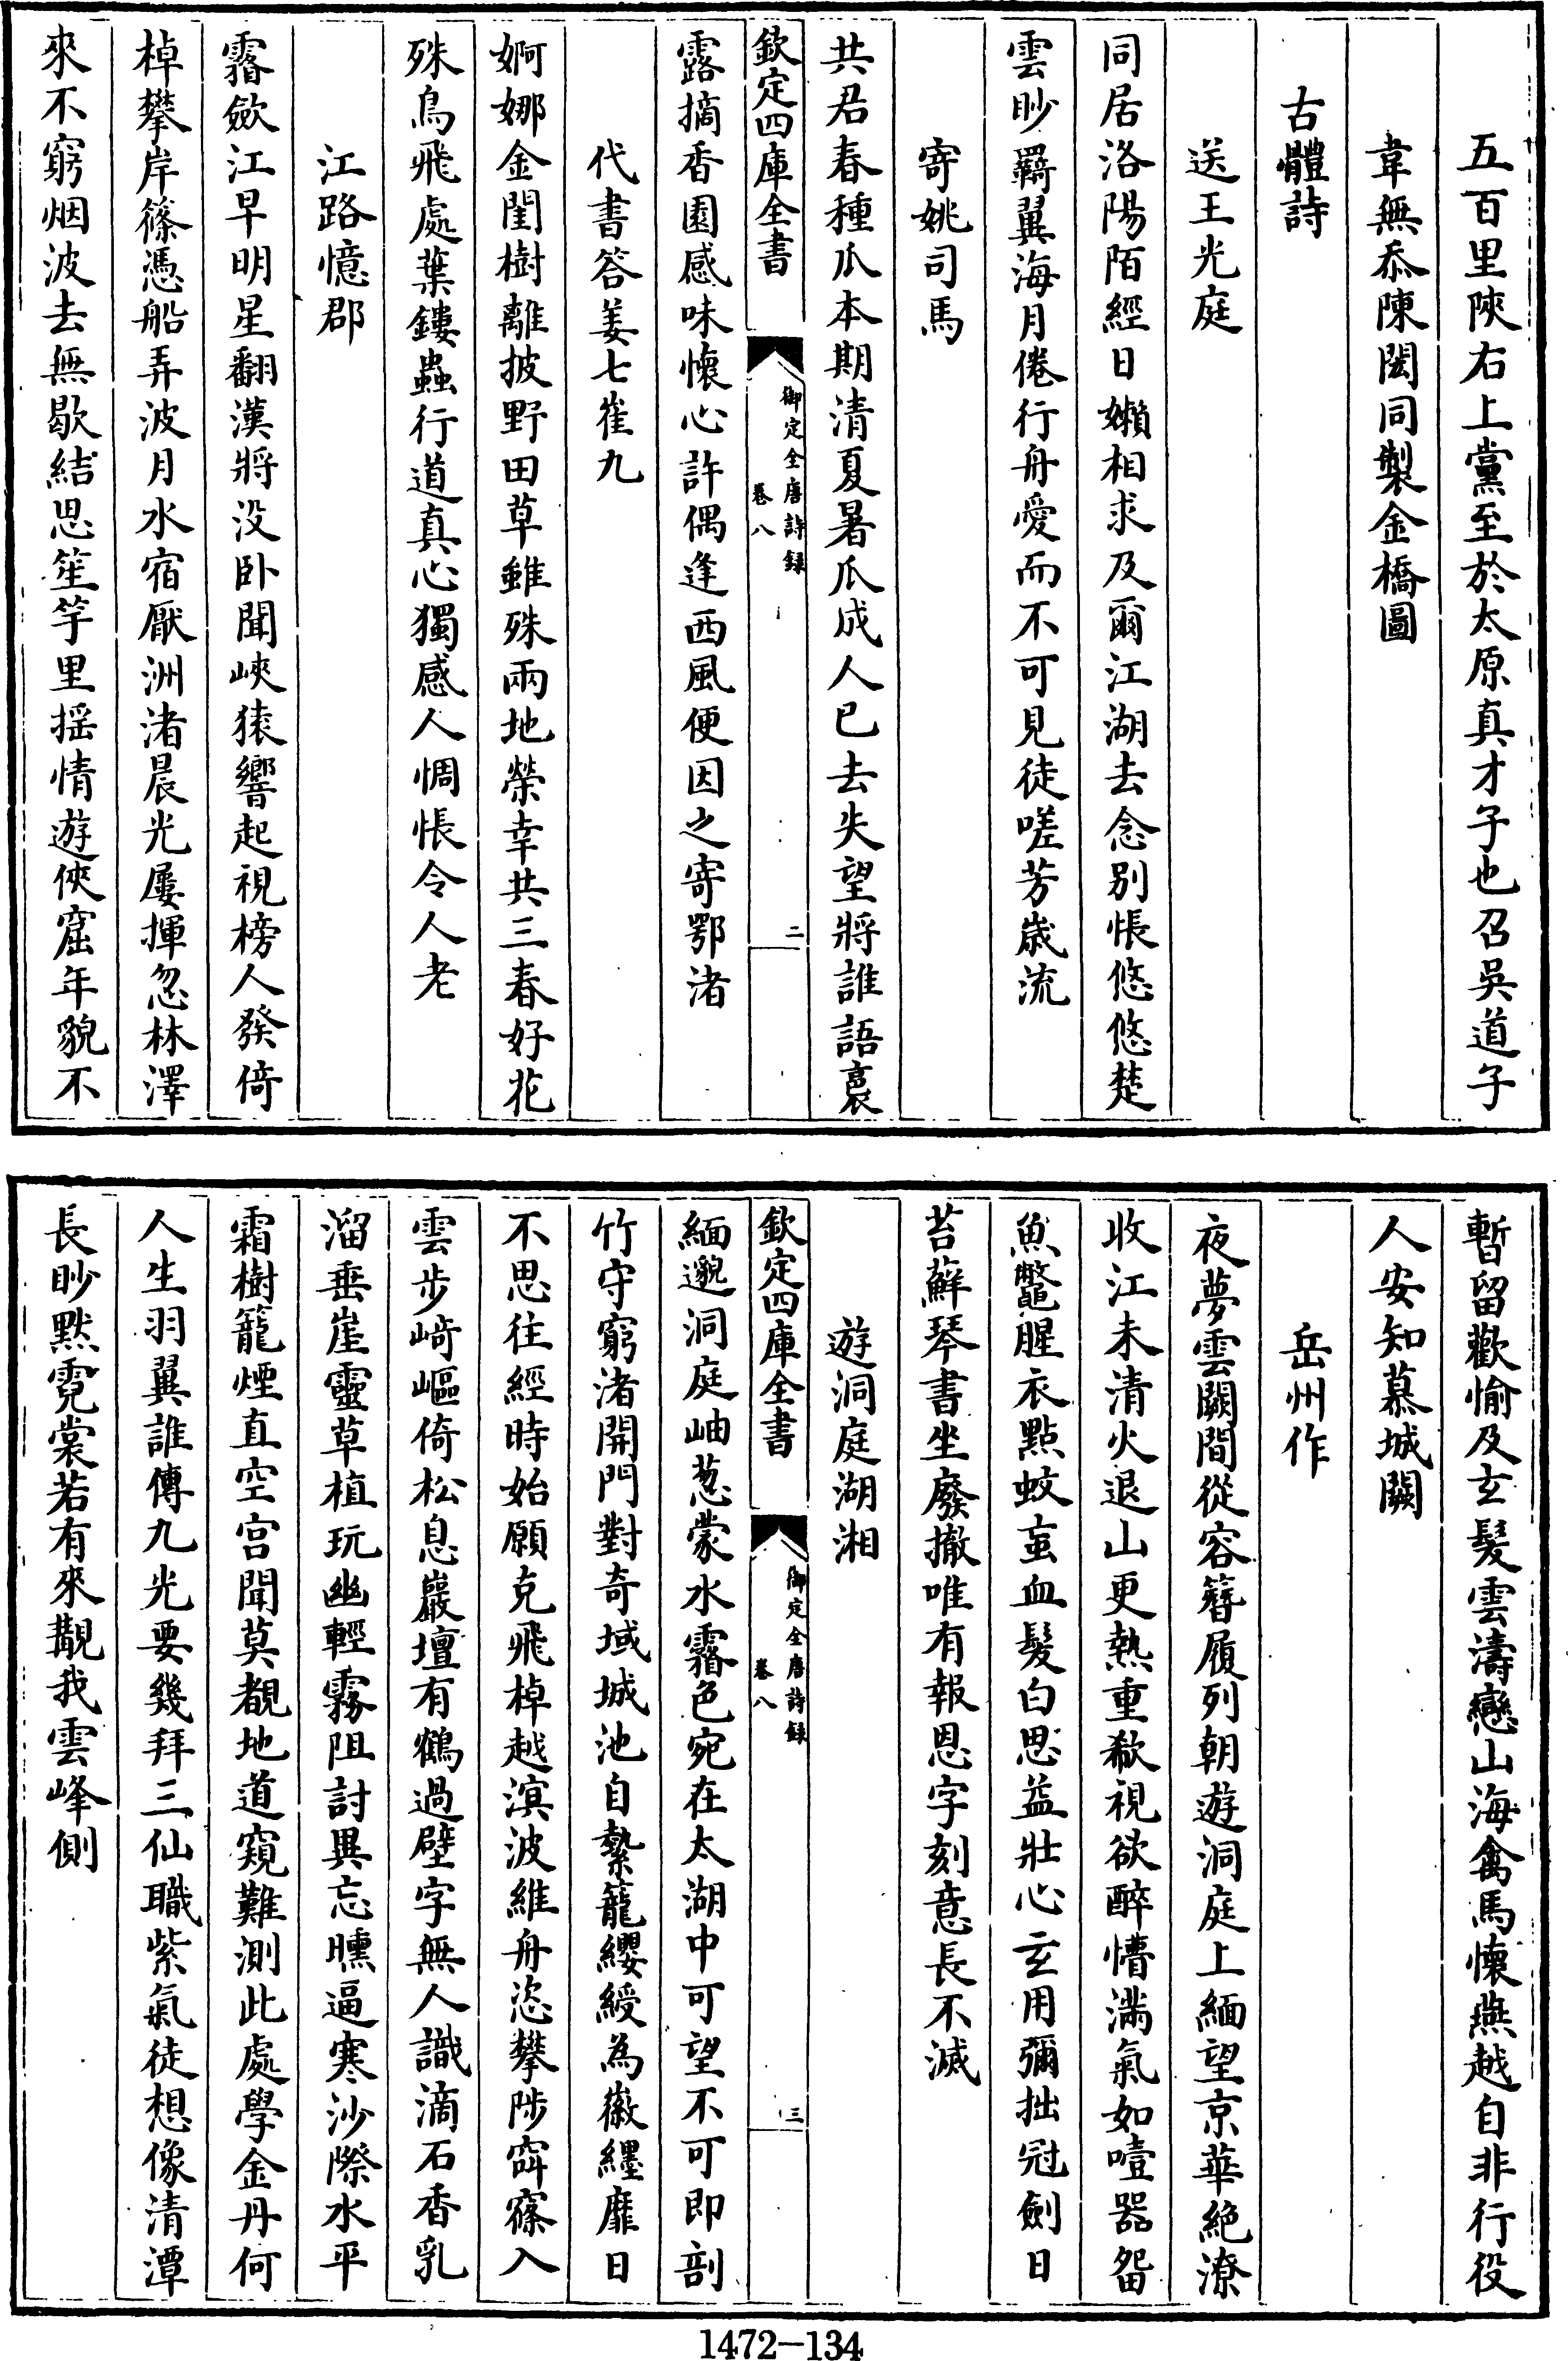 五百里陜右上黨至於太原真才子也召吳道子
韋無忝陳閎同製金橋圖
古體詩
送王光庭
同居洛陽陌經日嬾相求及爾江湖去念别悵悠悠楚
雲眇羇翼海月倦行舟愛而不可見徒嗟芳歲流
寄姚司馬
共君春種瓜本期清夏暑瓜成人已去失望將誰語裛
欽定四庫全書
御定全唐詩録
卷八
二
露摘香園感味懷心許偶逢西風便因之寄鄂渚
代書答姜七崔九
婀娜金閨樹離披野田草雖殊兩地榮幸共三春好花
殊鳥飛處葉鏤蟲行道真心獨感人惆悵令人老
江路憶郡
霧歛江早明星翻漢將没卧聞峽猿響起視榜人發倚
棹攀岸篠憑船弄波月水宿厭洲渚晨光屢揮忽林澤
來不窮烟波去無歇結思笙竽里揺情遊俠窟年貌不
暫留歡愉及玄髮雲濤戀山海禽馬懷燕越自非行役
人安知慕城闕
岳州作
夜夢雲闕間從容簪履列朝遊洞庭上緬望京華絶潦
收江未清火退山更熱重欷視欲醉懵滿氣如噎器留
魚鼈腥衣點蚊䖟血髮白思益壯心玄用彌拙冠劍日
苔蘚琴書坐廢撤唯有報恩字刻意長不滅
遊洞庭湖湘
欽定四庫全書
御定全唐詩録
卷八
三
緬邈洞庭岫葱蒙水霧色宛在太湖中可望不可即剖
竹守窮渚開門對奇域城池自縶籠纓綬為徽纆靡日
不思往經時始願克飛棹越溟波維舟恣攀陟窙寥入
雲步﨑嶇倚松息巖壇有鶴過壁字無人識滴石香乳
溜垂崖靈草植玩幽輕霧阻討異忘曛逼寒沙際水平
霜樹籠煙直空宫聞莫覩地道窺難測此處學金丹何
人生羽翼誰傳九光要幾拜三仙職紫氣徒想像清潭
長眇黙霓裳若有來覯我雲峰側
1472-134